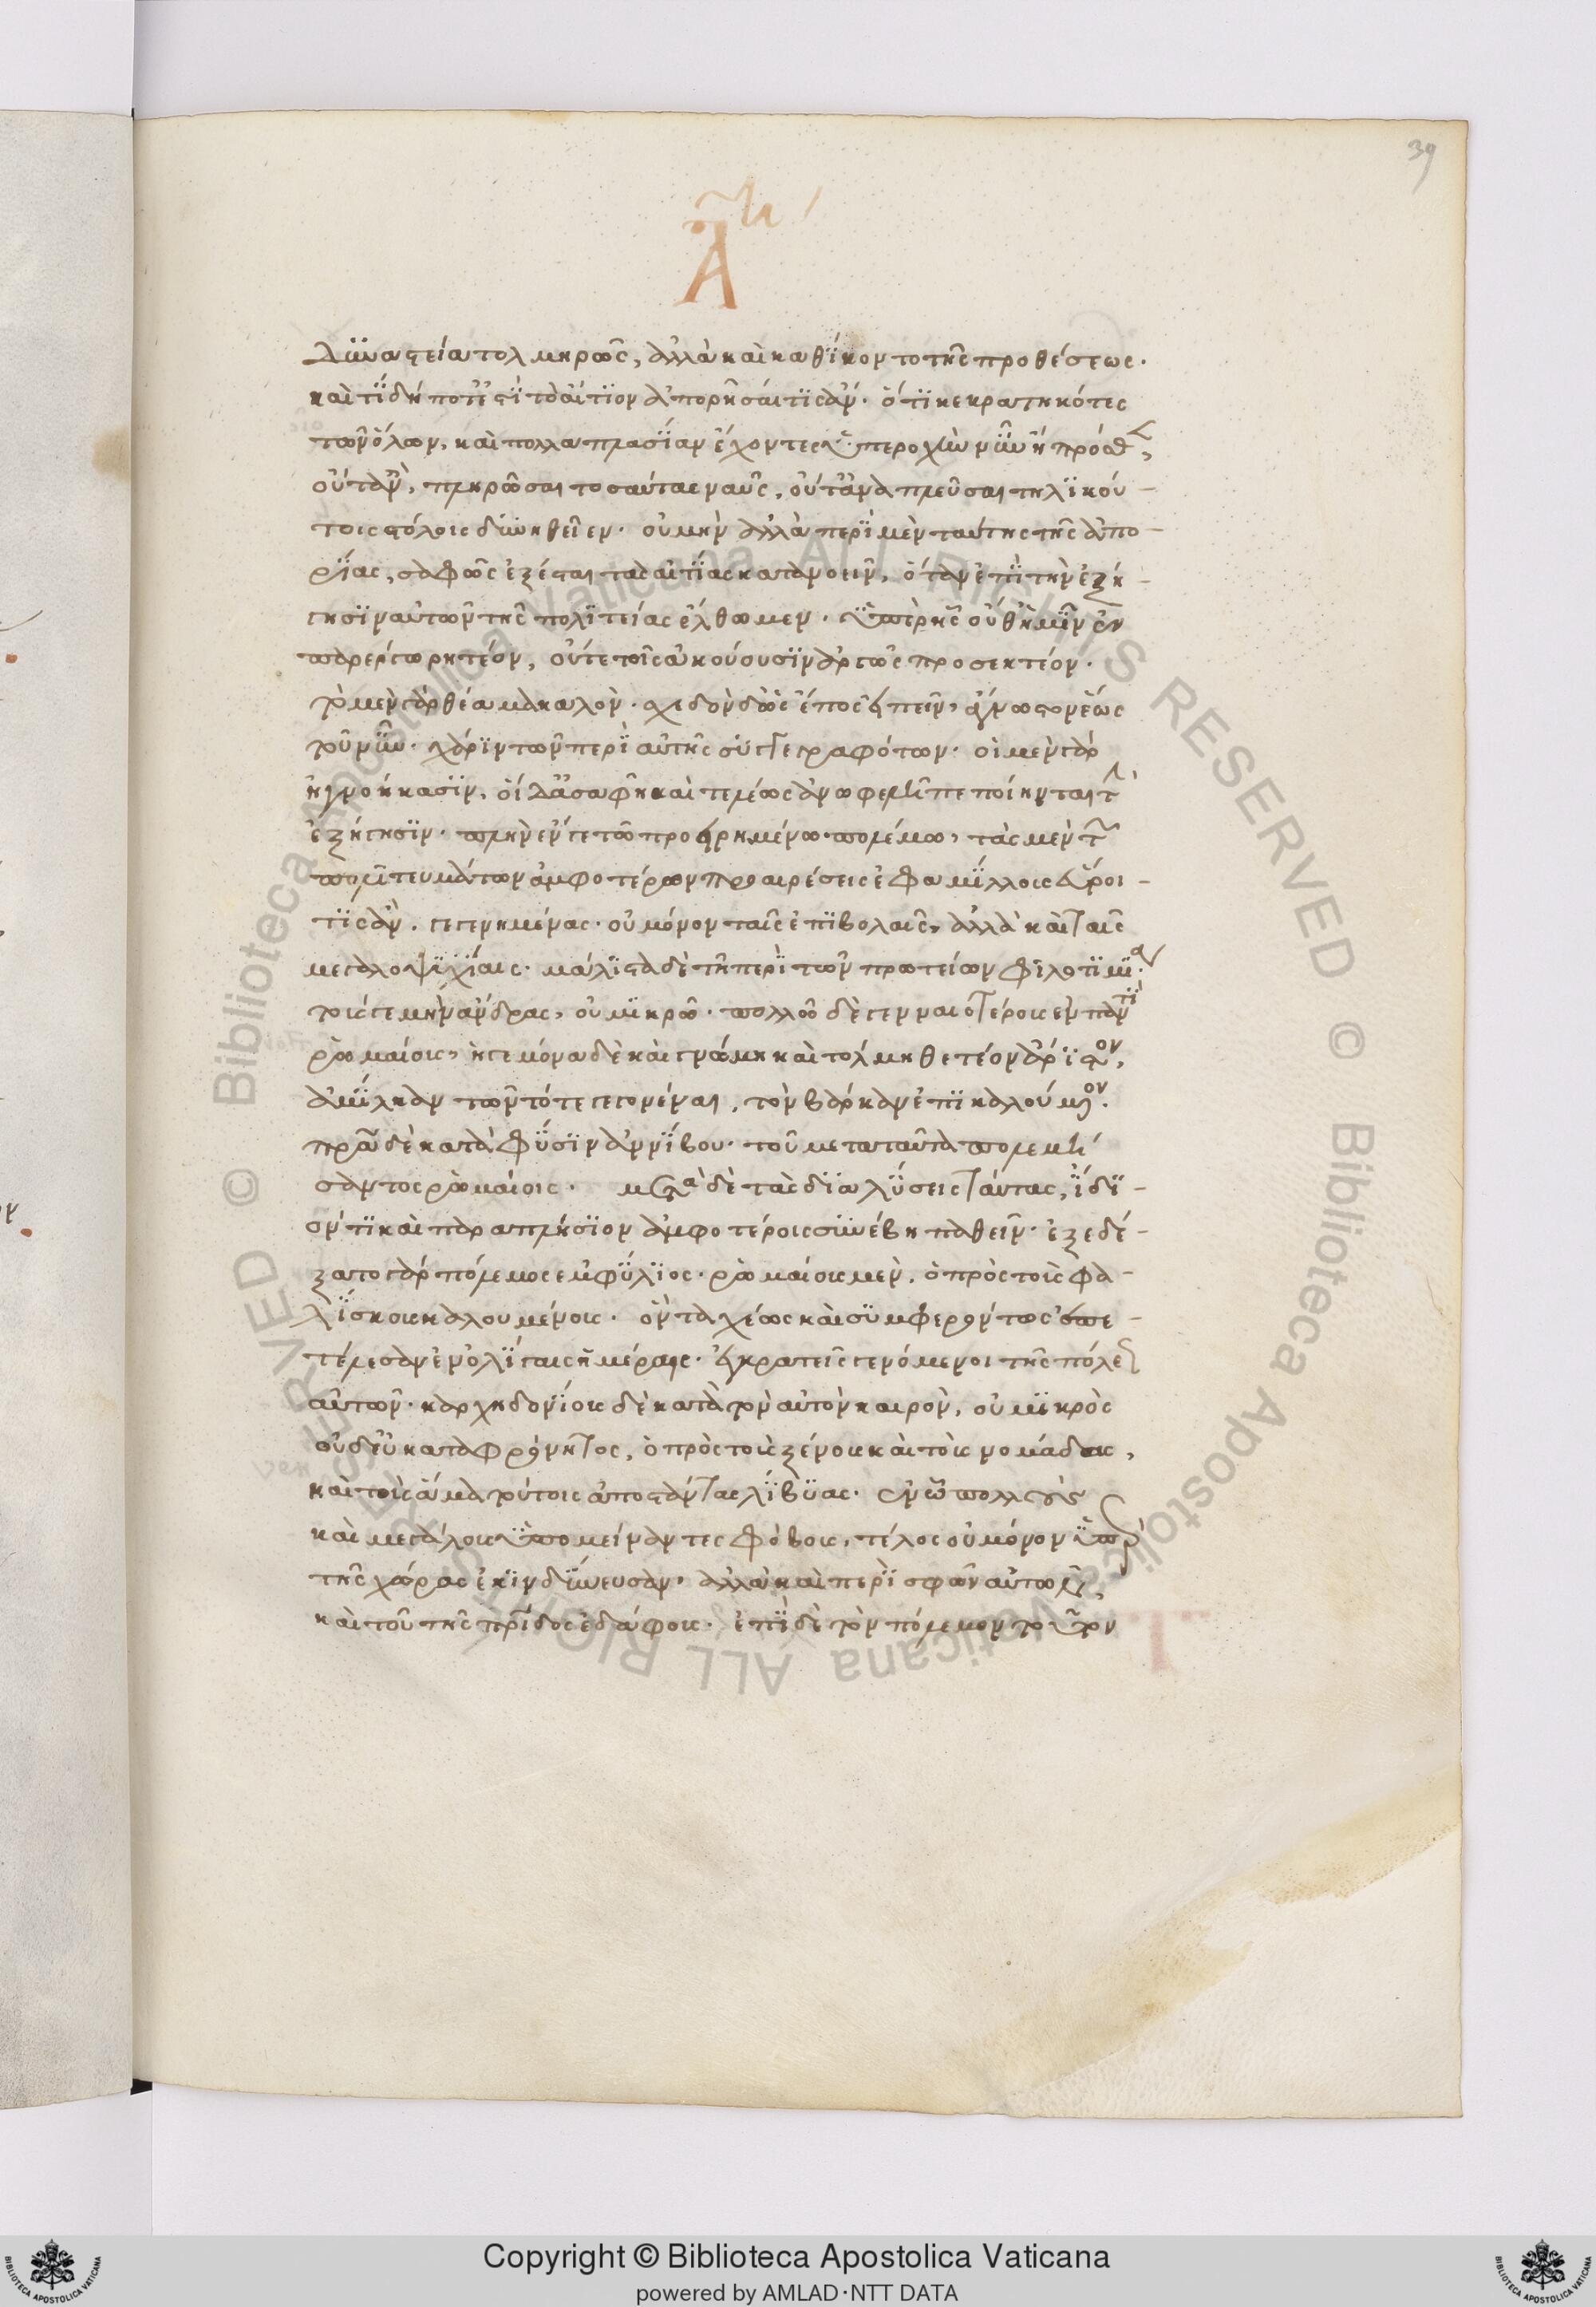 39
Α
δυναστεία τολμηρῶς, ἀλλὰ καὶ καθΐκοντο τῆς προθέσεως.
καὶ τΐ δήποτ' ἐστῒ τὸ αἴτϊον ἀπορῆσαί τϊς ἄν. ὅτϊ κεκρατηκότες
τῶν ὅλων, καὶ πολλαπλασΐαν ἔχοντες ὑπεροχὴν νῦν ἢ πρόσθεν,
οὔτ' ἂν, πληρῶσαι τοσαύτας ναῦς, οὔτ' ἀναπλεῦσαι τηλϊκού-
τοις στόλοις δυνηθεῖεν. οὐ μὴν ἀλλὰ περῒ μὲν ταύτης τῆς ἀπο-
ρΐας, σαφῶς ἐξέσται τὰς αἰτΐας κατανοεῖν, ὅταν ἐπῒ τὴν ἐξή-
γησϊν αὐτῶν τῆς πολϊτείας ἔλθωμεν. ὑπὲρ ἧς οὔθ' ἡμῖν ἐν
παρέργω ρητέον, οὔτε τοῖς ἀκούουσϊν ἀργῶς προσεκτέον.
τὸ μὲν γὰρ θέαμα καλὸν. σχεδὸν δ' ὡς ἔπος εἰπεῖν, ἄγνωστον ἕως
τοῦ νῦν. χάρϊν τῶν περῒ αὐτῆς συγγεγραφότων. οἱ μὲν γὰρ
ἠγνοήκασϊν, οἱ δ' ἀσαφῆ καὶ τελέως ἀνωφελῆ πεποίηνται τὴν
ἐξήγησϊν. πλὴν ἐν γε τῶ προειρημένω πολέμω, τὰς μὲν τῶν
πολϊτευμάτων ἀμφοτέρων προαιρέσεις ἐφαμΐλλους εὕροι
τϊς ἂν. γεγενημένας. οὐ μόνον ταῖς ἐπϊβολαῖς, ἀλλὰ καὶ ταῖς
μεγαλοψϋχΐαις. μάλϊστα δὲ τῆ περῒ τῶν πρωτείων φϊλοτϊμΐα.
τούς γε μὴν ἄνδρας, οὐ μϊκρῶ. πολλῶ δὲ γενναιοτέρους ἐν παντῒ
ρωμαίους, ἡγεμόνα δὲ καὶ γνώμη καὶ τόλμη θετέον ἄρϊστον,
ἀμΐλκαν τῶν τότε γεγονέναι, τὸν βάρκαν ἐπϊκαλούμενον.
πατέρα δὲ κατὰ φΰσϊν ἀννΐβου. τοῦ μετὰ ταῦτα πολεμή
σαντος ρωμαίοις. μετὰ δὲ τὰς δϊαλΰσεις ταύτας, ΐδϊ-
όν τϊ καὶ παραπλήσϊον ἀμφοτέροις συνέβη παθεῖν. ἐξεδέ-
ξατο γὰρ πόλεμος ἐμφΰλϊος. ρωμαίους μὲν, ὁ πρὸς τοὺς φα-
λΐσκους καλουμένους. ὃν ταχέως καὶ συμφερόντως ἐπε-
τέλεσαν ἐν ὀλΐγαις ἡμέραις. ἐγκρατεῖς γενόμενοι τῆς πόλεως
αὐτῶν. καρχηδονΐους δὲ κατὰ τὸν αὐτὸν καιρὸν, οὐ μϊκρὸς
οὐδ' εὐκαταφρόνητος, ὁ πρὸς τοὺς ξένους καὶ τοὺς νομάδας,
καὶ τοὺς ἅμα τούτοις ἀποστάντας λΐβϋας. ἐν ὧ πολλοὺς
καὶ μεγάλους ὑπομείναντες φόβους, τέλος οὐ μόνον ὑπὲρ
τῆς χώρας ἐκϊνδΰνευσαν, ἀλλὰ καὶ περῒ σφῶν αὐτῶν,
καὶ τοῦ τῆς πατρίδος ἐδάφους. ἐπῒ δὲ τὸν πόλεμον τοῦτον
© Biblioteca Apostolica Vaticana ALL RIGHTS RESERVED © Biblioteca Apostolica Vaticana ALL RIGHTS RESERVED
Copyright © Biblioteca Apostolica Vaticana
powered by AMLAD·NTT DATA
BIBLIOTECA APOSTOLICA VATICANA
BIBLIOTECA APOSTOLICA VATICANA